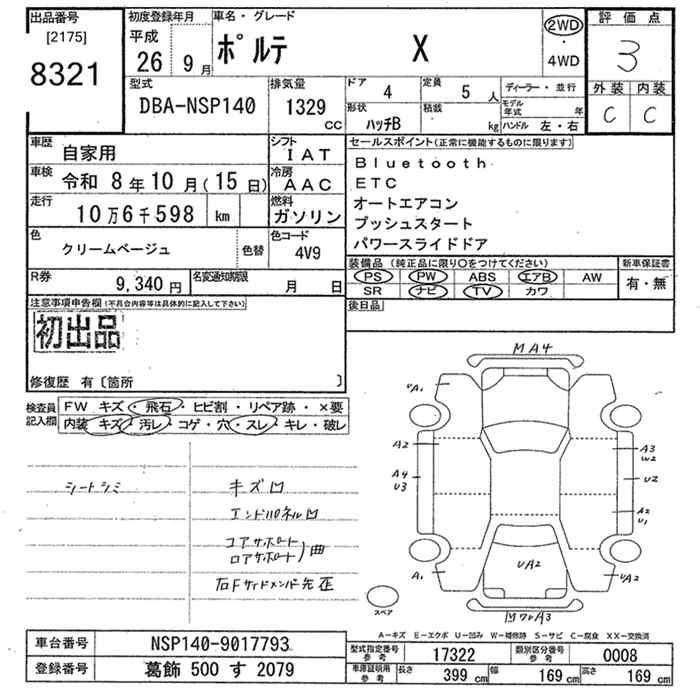 出品番号
[2175]
8321
初度登録年月
平成
26 9月
車名・グレード
ポルテ X
2WD
・
4WD
評価点
3
外装 内装
C C
型式
DBA-NSP140
排気量
1329
CC
ドア
4
定員
5人
形状
ハッチB
積載
kg
ディーラー・並行
モデル年式
年
ハンドル 左・右
車歴
自家用
シフト
IAT
車検
令和 8年10月(15日)
冷房
AAC
走行
10万6千598 km
燃料
ガソリン
色
クリームベージュ
色替
色コード
4V9
R券
9,340円
名変通知期限
月 日
セールスポイント(正常に機能するものに限ります)
Bluetooth
ETC
オートエアコン
プッシュスタート
パワースライドドア
装備品(純正品に限り○をつけてください)
PS PW ABS エアB AW
SR ナビ TV カワ
新車保証書
有・無
後日品
注意事項申告欄(不具合内容等は具体的に記入して下さい)
初出品
修復歴 有〔箇所 〕
検査員記入欄
FW キズ・飛石・ヒビ割・リペア跡・×要
内装 キズ・汚レ・コゲ・穴・スレ・キレ・破レ
シートシミ
キズ凹
エンドパネル凹
コアサポート
ロアサポート)曲
右Fサイドメンバ先歪
MA4
A2
A4
U3
A1
A3
W2
U2
A2
U1
UA2
UA2
スペア
A―キズ E―エクボ U―凹み W―補修跡 S―サビ C―腐食 XX―交換済
車台番号
NSP140-9017793
登録番号
葛飾 500 す 2079
型式指定番号
参考
17322
類別区分番号
参考
0008
車庫証明用
参考
長さ
399 cm
幅
169 cm
高さ
169 cm